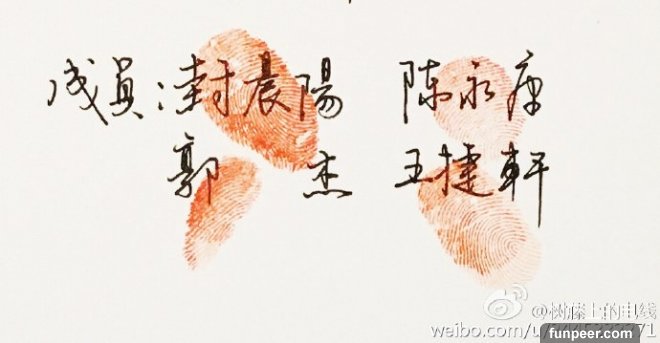 成員:封晨陽 陈永康
郭 杰 王捷軒
@树藤上的电线
weibo.com/u/
funpeer.com